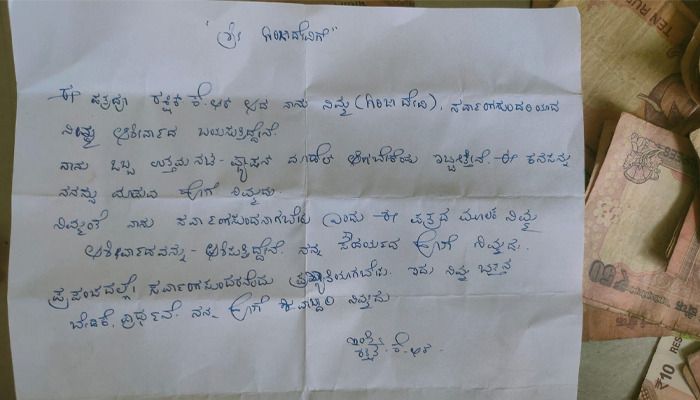 "ಶ್ರೀ ಗಿರಿಜಾದೇವಿಗೆ"
ಈ ಪತ್ರದ್ವಾರಾ ರಕ್ಷಿತ ಕೆ. ಆರ್ ಆದ ನಾನು ನಿಮ್ಮ (ಗಿರಿಜಾ ದೇವಿ), ಸರ್ವಾಂಗಸುಂದರಿಯಾದ
ನಿಮ್ಮ ಆಶೀರ್ವಾದ ಬಯಸುತ್ತಿದ್ದೇನೆ.
ನಾನು ಒಬ್ಬ ಉತ್ತಮ ನಟ - ಫ್ಯಾಷನ್ ಮಾಡೆಲ್ ಆಗಬೇಕೆಂದು ಇಚ್ಛಿಸುತ್ತೇನೆ. ಈ ಕನಸನ್ನು
ನನಸು ಮಾಡುವ ಹೊಣೆ ನಿಮ್ಮದು.
ನಿಮ್ಮಂತೆ ನಾನು ಸರ್ವಾಂಗಸುಂದರನಾಗಬೇಕು ಎಂದು ಈ ಪತ್ರದ ಮೂಲಕ ನಿಮ್ಮ
ಆಶೀರ್ವಾದವನ್ನು - ಆಶಿಸುತ್ತಿದ್ದೇನೆ. ನನ್ನ ಸೌಂದರ್ಯದ ಹೊಣೆ ನಿಮ್ಮದು.
ಪ್ರಪಂಚದಲ್ಲೇ ಸರ್ವಾಂಗಸುಂದರನೆಂದು ಪ್ರಖ್ಯಾತಿಯಾಗಬೇಕು. ಇದು ನಿಮ್ಮ ಭಕ್ತನ
ಬೇಡಿಕೆ, ಪ್ರಾರ್ಥನೆ. ನನ್ನ ಹೊಣೆ ನಿಮ್ಮದು
ಇಂತಿ
ರಕ್ಷಿತ. ಕೆ. ಆರ್.
TEN RU
₹10